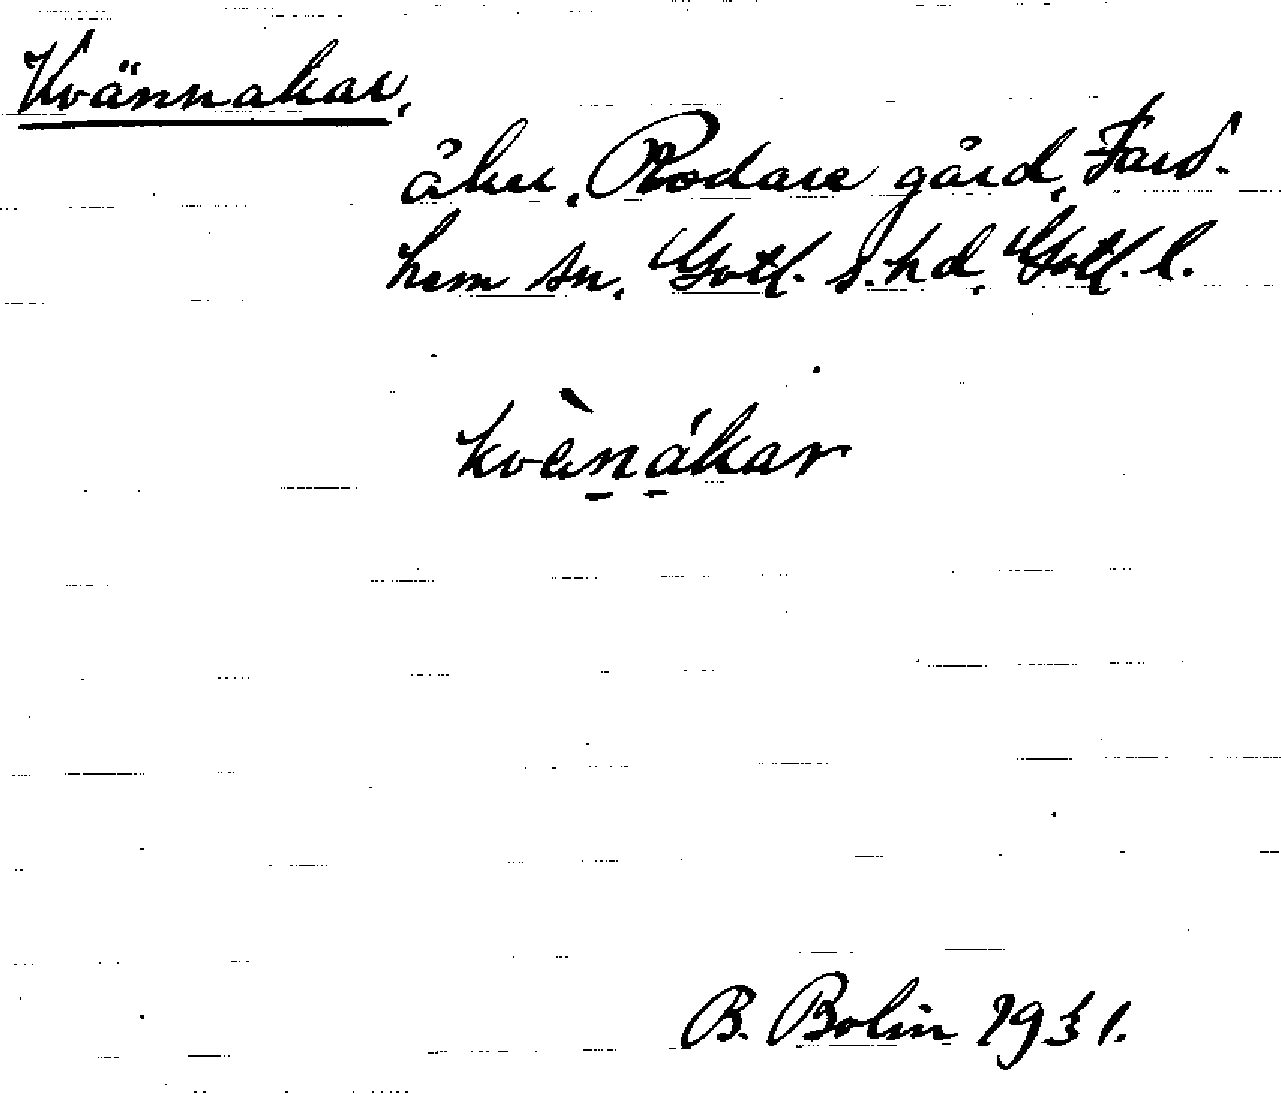 Kvännakar,
åker, Rodare gård, Fard-
hem sn, Gotl. s. hd, Gotl. l.
kvä̀nákar
B. Bolin 1931.